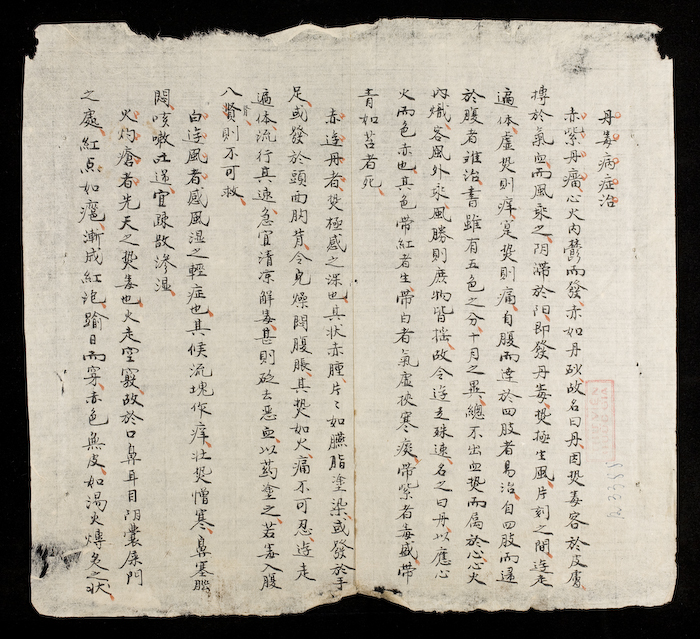 丹毒病症治
赤紫丹癗心火內鬱而發赤如丹砂故名曰丹因热毒客於皮膚
搏於氣血而風乘之阴滞於阳即發丹毒热極生風片刻之間逰走
遍体虚热则痒寔热则痛自腹而達於四肢者易治自四肢而達
於腹者难治書雖有五色之分十月之異總不出血热而属於心心火
內熾客風外乘風勝则廣物皆摇故令逰走殊速名之曰丹以應心
火而色赤也其色带紅者生带白者氣虚挾寒痰带紫者毒盛带
青如苔者死
赤逰丹者热極感之深也其状赤腫片〻如臙脂塗染或發於手
足或發於頭面胸背令兒燥悶腹脹其热如火痛不可忍逰走
遍体流行其速急宜清凉解毒甚则砭去恶血以药塗之若毒入腹
入腎则不可救
白逰風者感風湿之輕症也其候流塊作痒壮热憎寒鼻塞腦
悶咳嗽吐逆宜疎散滲湿
火灼瘡者先天之热毒也火走空竅故於口鼻耳目阴囊屎門
之處紅点如瘤漸成紅泡踰日而穿赤色無皮如湯火煿炙之状